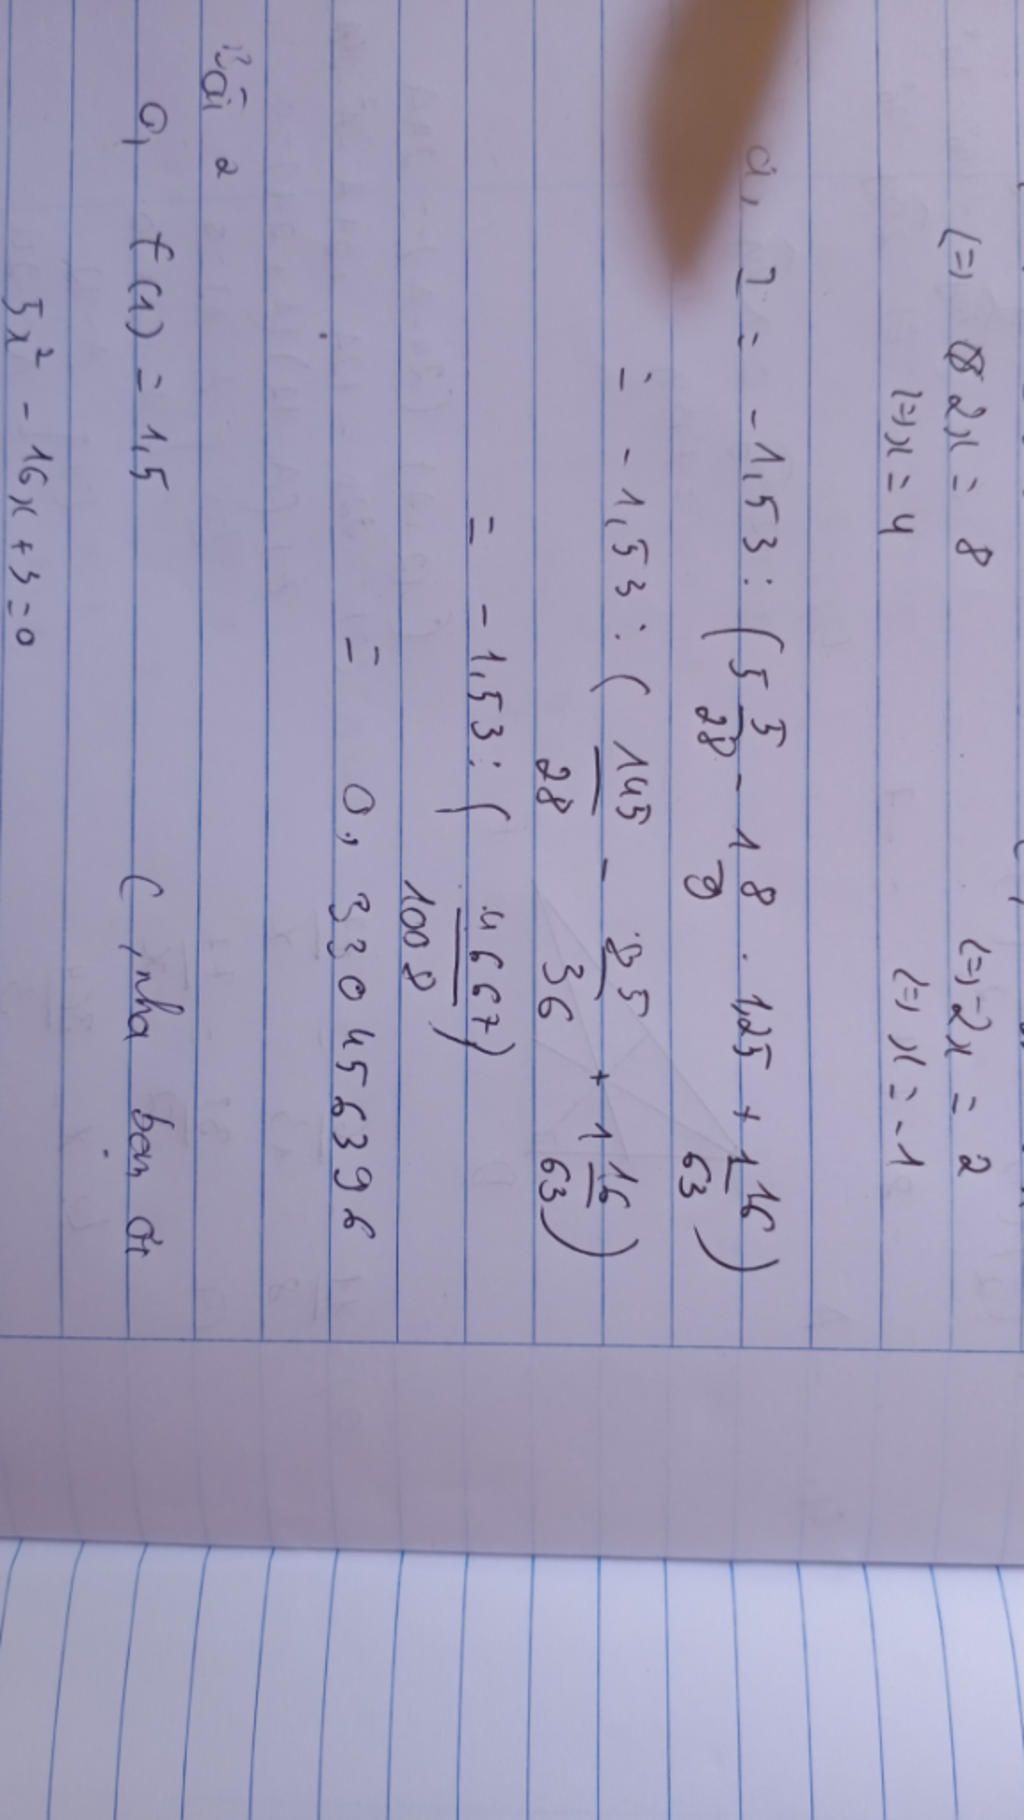 (=) 2x = 8
(=) -2x = 2
(=) x = 4
(=) x = -1
a, I = -1,53 : (5 5/28 - 1 8/9 . 1,25 + 1 16/63)
= -1,53 : (145/28 - 85/36 + 1 16/63)
= -1,53 : (4667/1008)
= 0,330456396
Bài 2
a, f(1) = 1,5 ( nha bạn ơi
5x² - 16x + 3 = 0